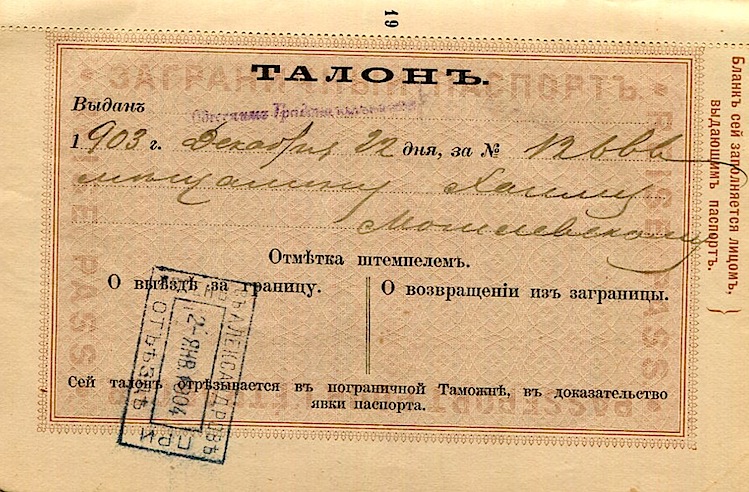 19
ТАЛОНЪ.
Выданъ Одесскимъ Градоначальникомъ
1903 г. Декабря 22 дня, за №
мѣщанину Хаиму
Могилевскому
Отмѣтка штемпелемъ.
О выѣздѣ за границу.
О возвращеніи изъ заграницы.
ВЪ АЛЕКСАНДРОВѢ
2 ЯНВ. 1904
ПРИ ОТЪѢЗДѢ
Сей талонъ отрѣзывается въ пограничной Таможнѣ, въ доказательство
явки паспорта.
Бланкъ сей заполняется лицомъ,
выдающимъ паспортъ.
ЗАГРАНИЧНЫЙ ПАСПОРТЪ
REISE PASS